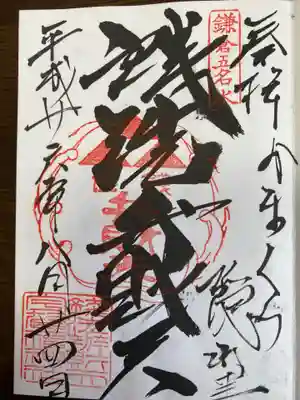 鎌倉五名水
奉拝 かまくら 隠れ里
錢洗弁財天
平成廿六年八月廿四日